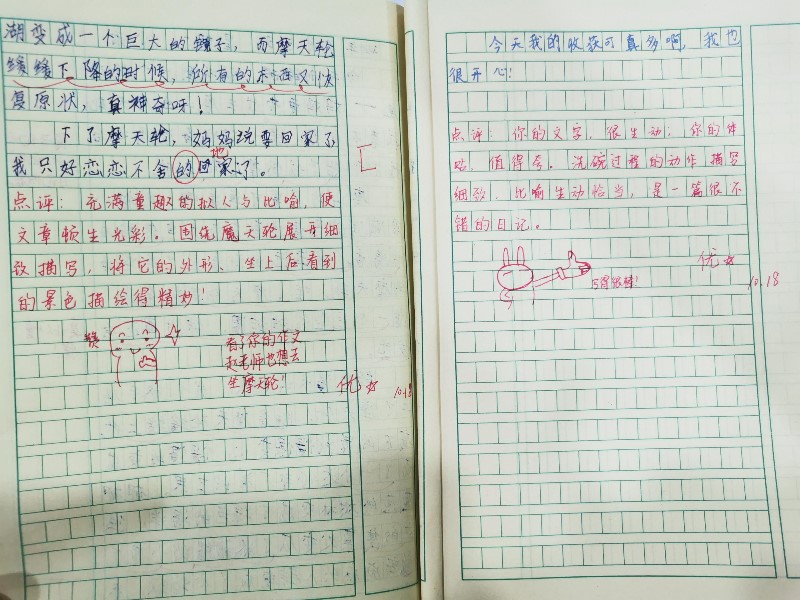 湖变成一个巨大的镜子，而摩天轮
缓缓下降的时候，所有的东西又恢
复原状，真神奇呀！
下了摩天轮，妈妈说要回家了
我只好恋恋不舍的回家了。
地
点评：充满童趣的拟人与比喻，使
文章顿生光彩。围绕魔天轮展开细
致描写，将它的外形、坐上后看到
的景色描绘得精妙！
看了你的作文
赵老师也想去
坐摩天轮！
优
10.18
今天我的收获可真多啊，我也
很开心！
点评：你的文字，很生动；你的体
贴，值得夸。洗碗过程的动作描写
细致，比喻生动恰当，是一篇很不
错的日记。
优
10.18